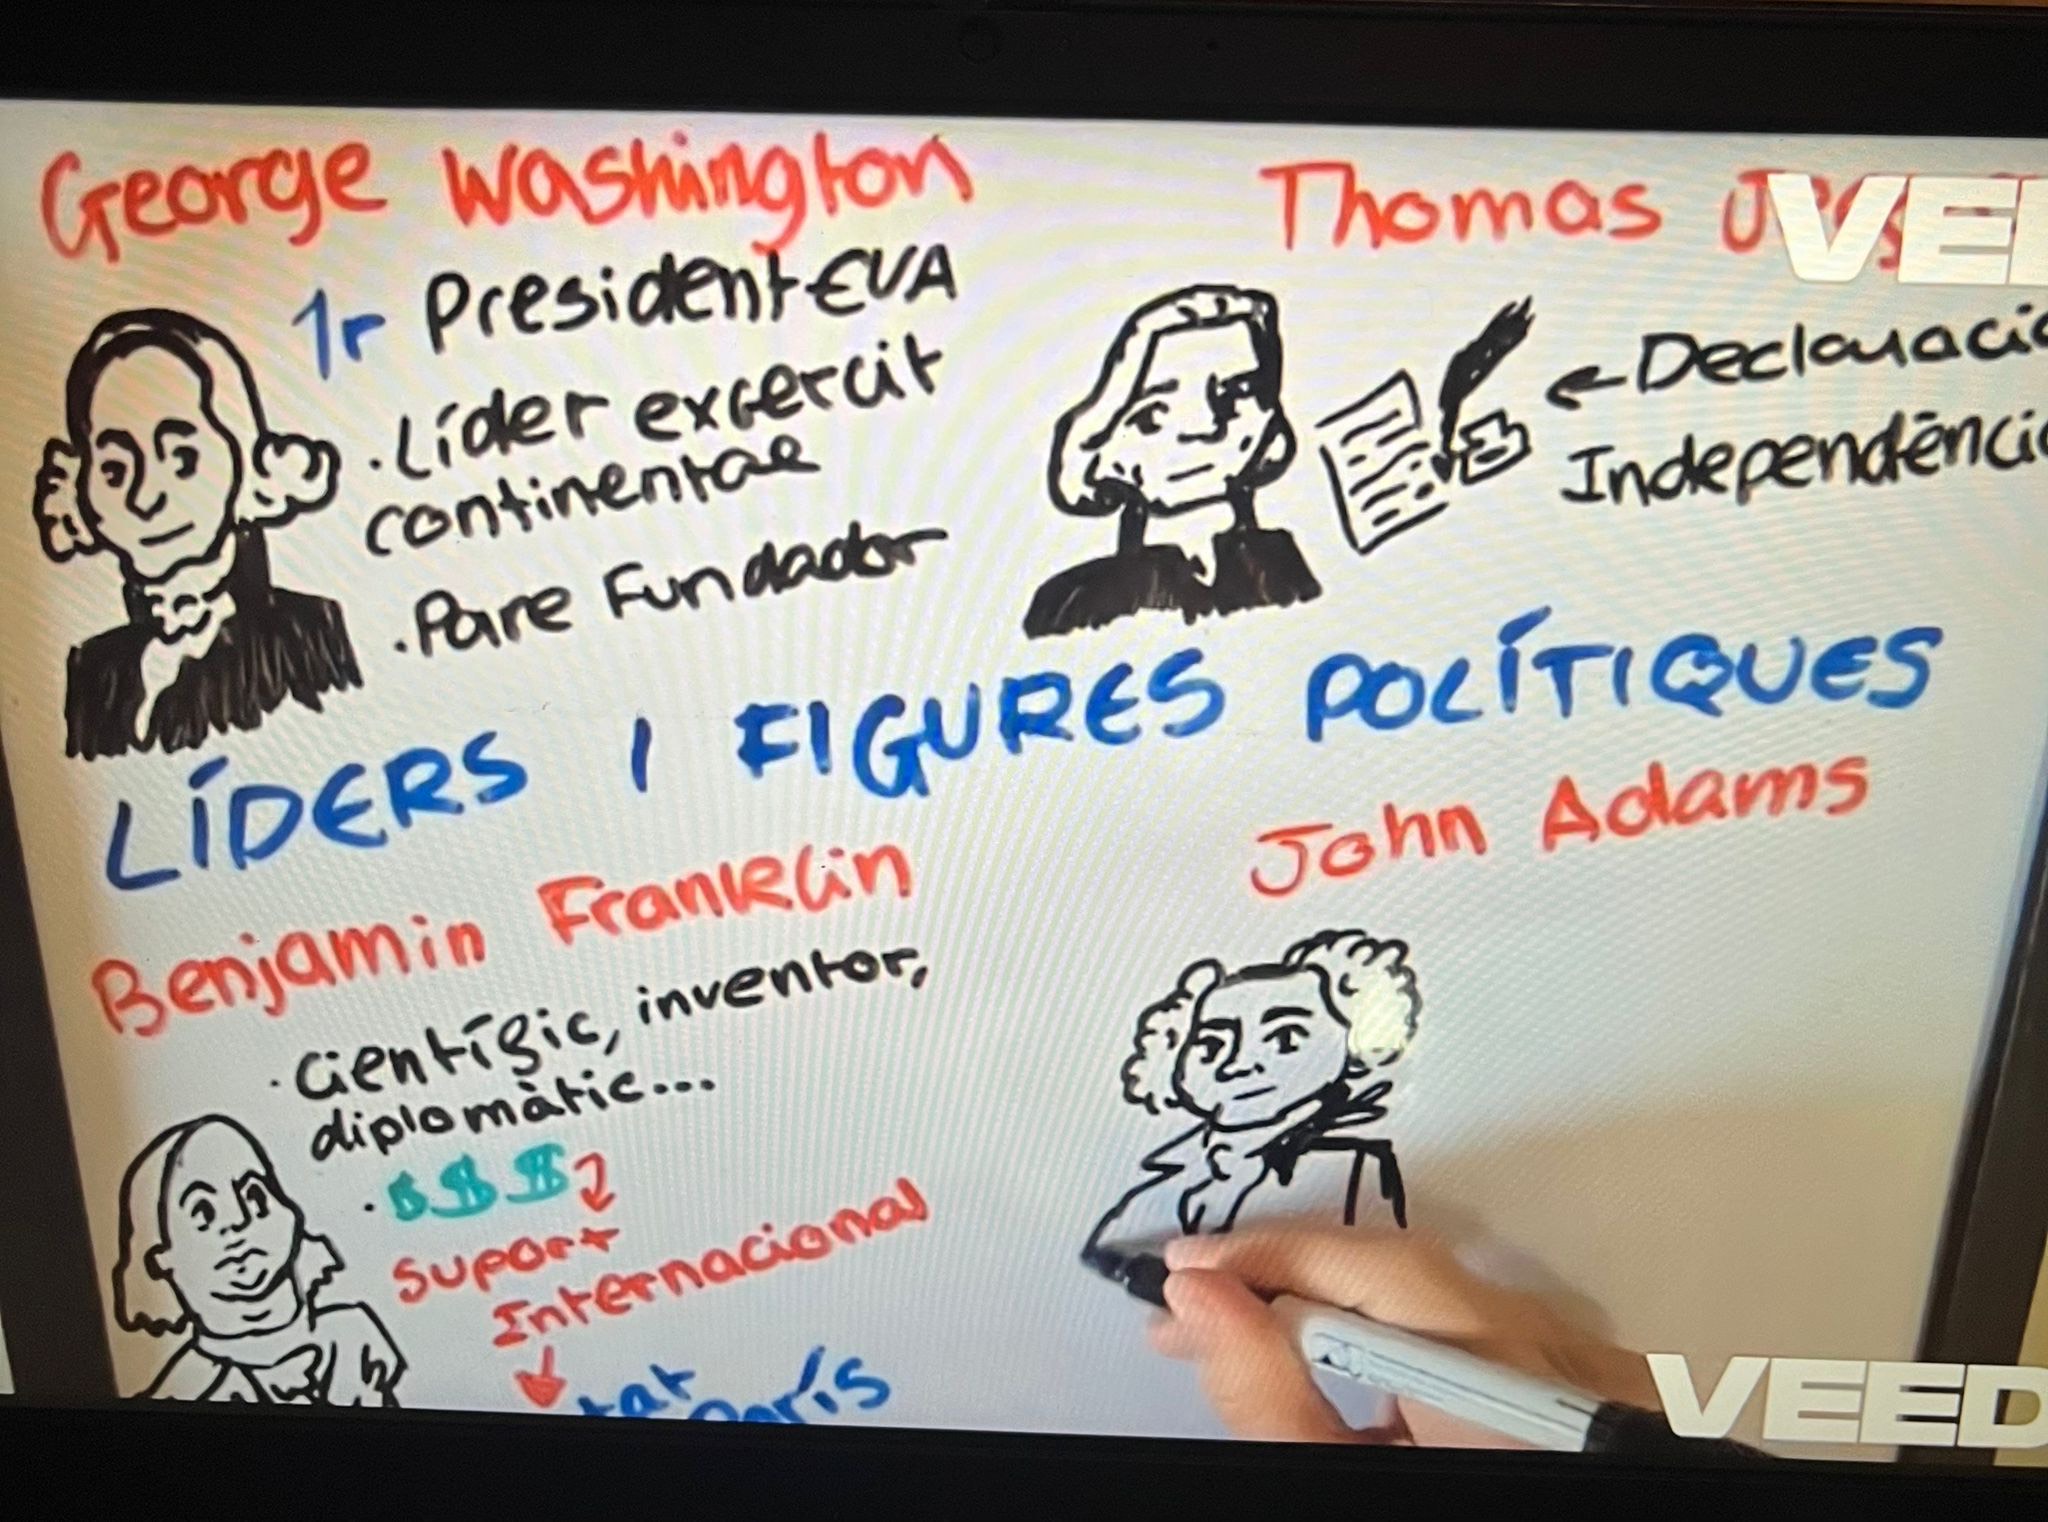 George Washington
1r President EUA
· Líder excercit
continental
· Pare Fundador
Thomas
VEED
← Declaració
Independència
LÍDERS I FIGURES POLÍTIQUES
Benjamin Franklin
· Científic, inventor,
diplomàtic...
· $ $ $
Suport
Internacional
París
John Adams
VEED